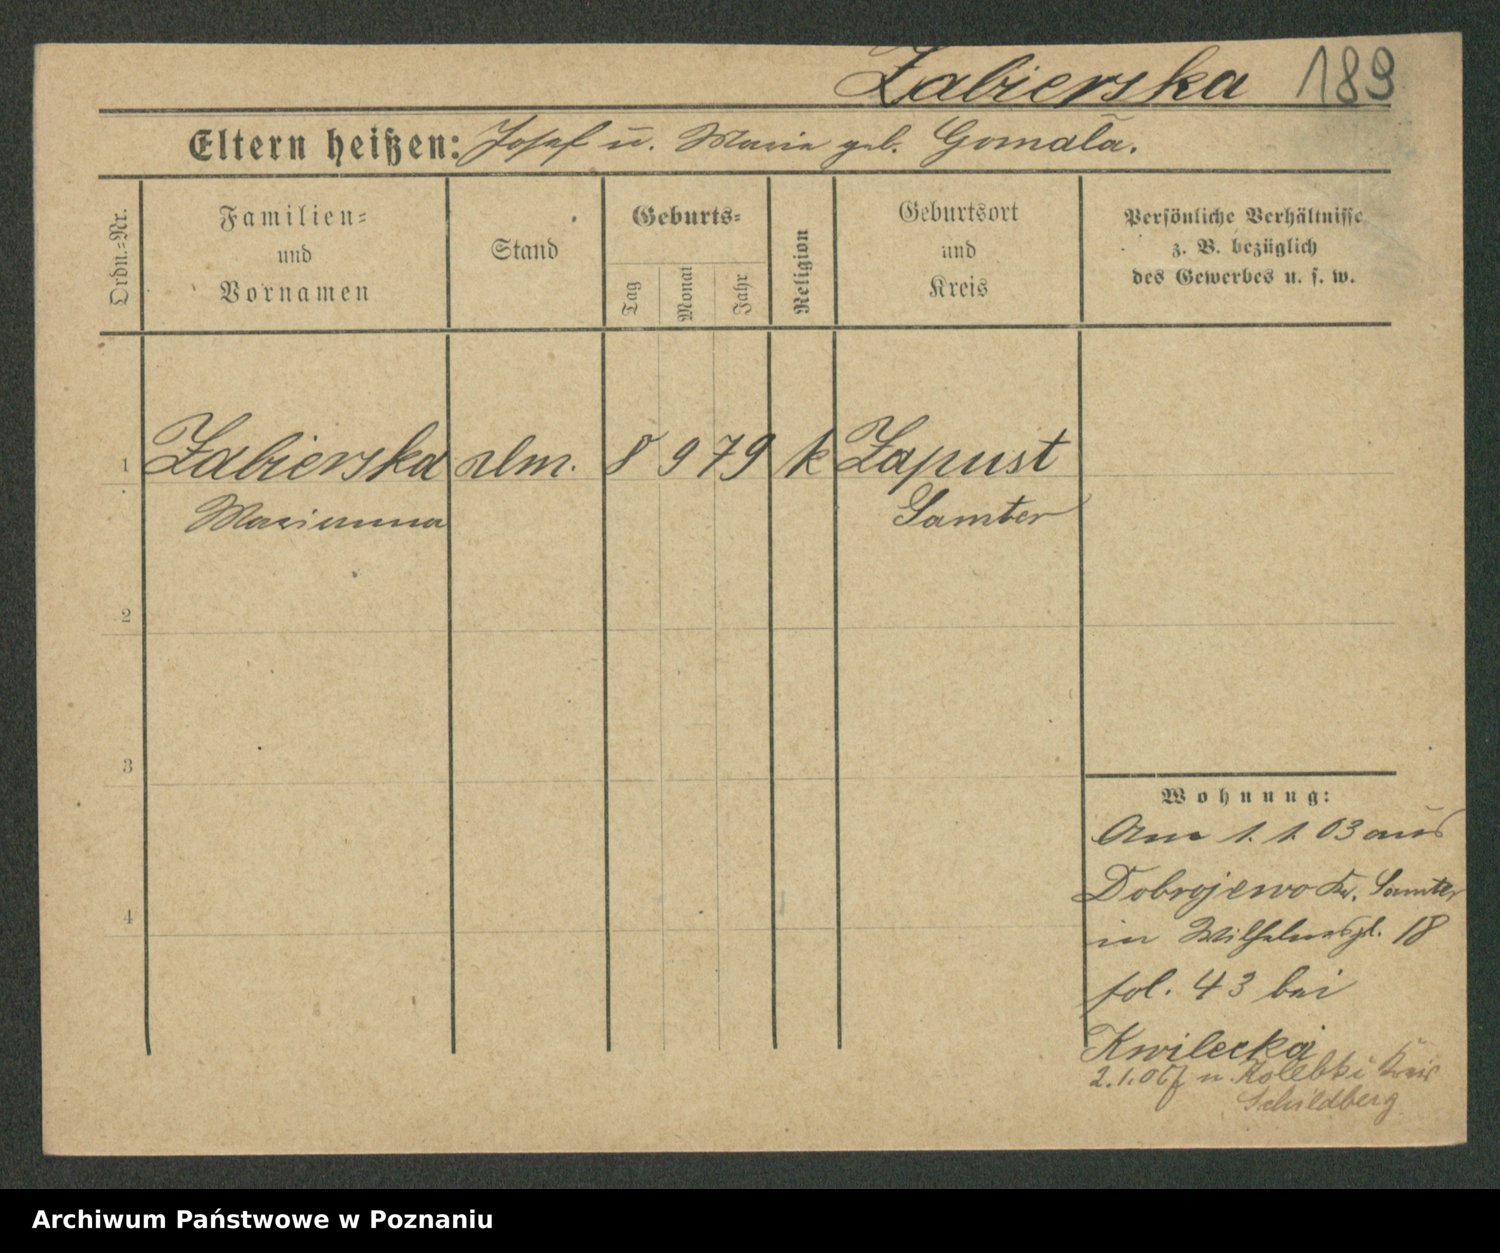 Zabierska 189
Eltern heißen: Josef u. Marie geb. Gomala.
Ordn.=Nr.
Familien=
und
Vornamen
Stand
Geburts=
Tag
Monat
Jahr
Religion
Geburtsort
und
Kreis
Persönliche Verhältnisse
z. B. bezüglich
des Gewerbes u. s. w.
1 Zabierska 8 9 79 k Zapust
Marianna Samter
2
3
4
Wohnung:
Am 1. 1. 03 aus
Dobrojewo Kr. Samter
in Wilhelmspl. 18
fol. 43 bei
Kwilecka
2.1.06 n. Kolebki Kreis
Schildberg
Archiwum Państwowe w Poznaniu